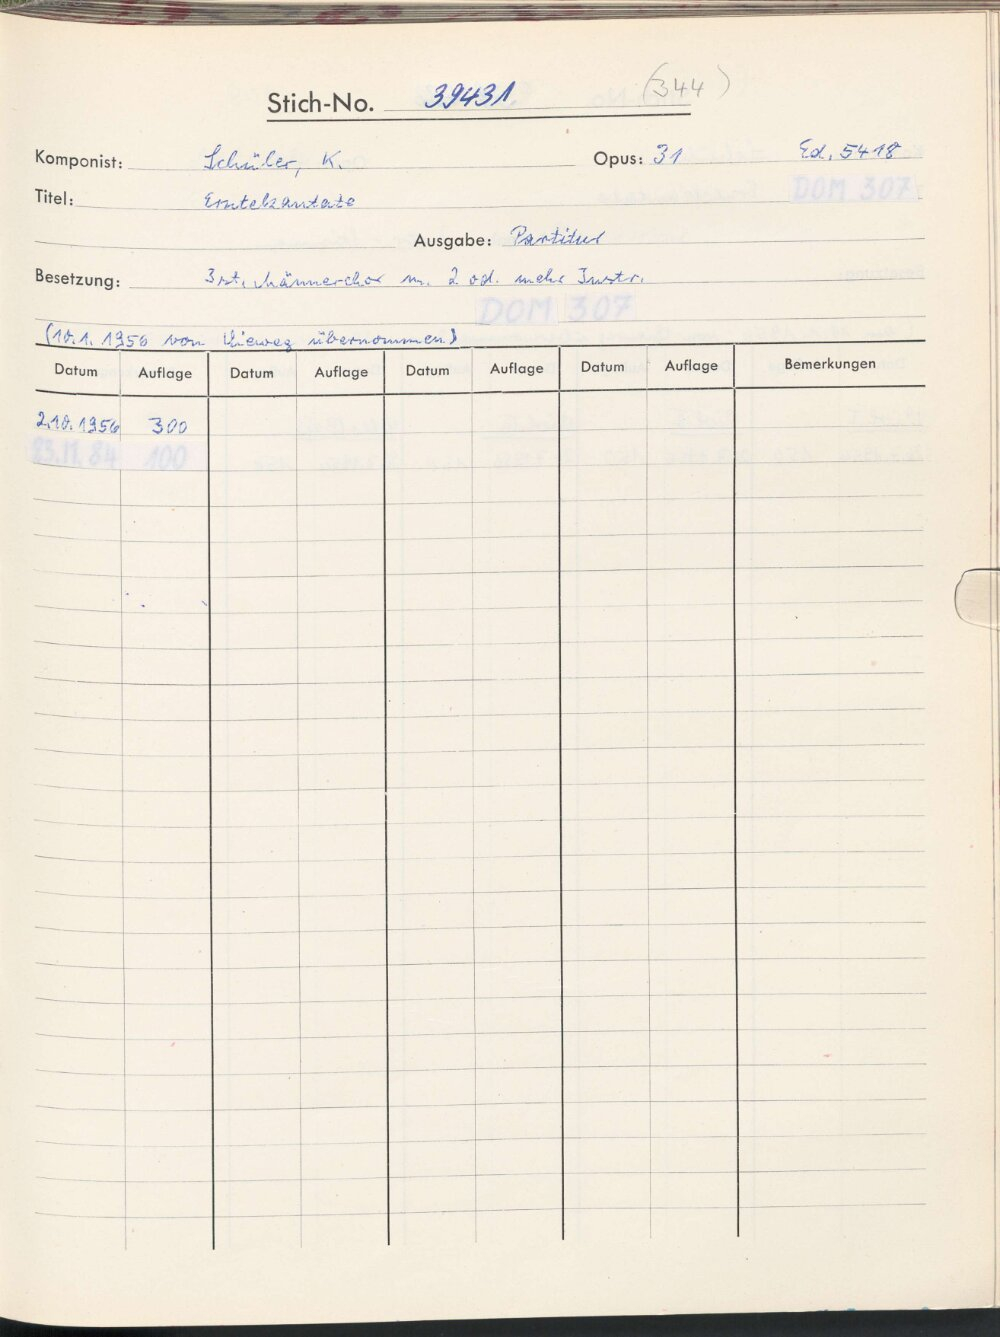 Stich-No. 39431. (344)
Komponist: Schüler, K. Opus: 31 Ed. 5418
Titel: Erntekantate DOM 307
Ausgabe: Partitur
Besetzung: 3 st. Männerchor m. 2 od. mehr Instr.
DOM 307
(10.1.1956 von Vieweg übernommen)
Datum Auflage Datum Auflage Datum Auflage Datum Auflage Bemerkungen
2.10.1956 300
23.11.84 100